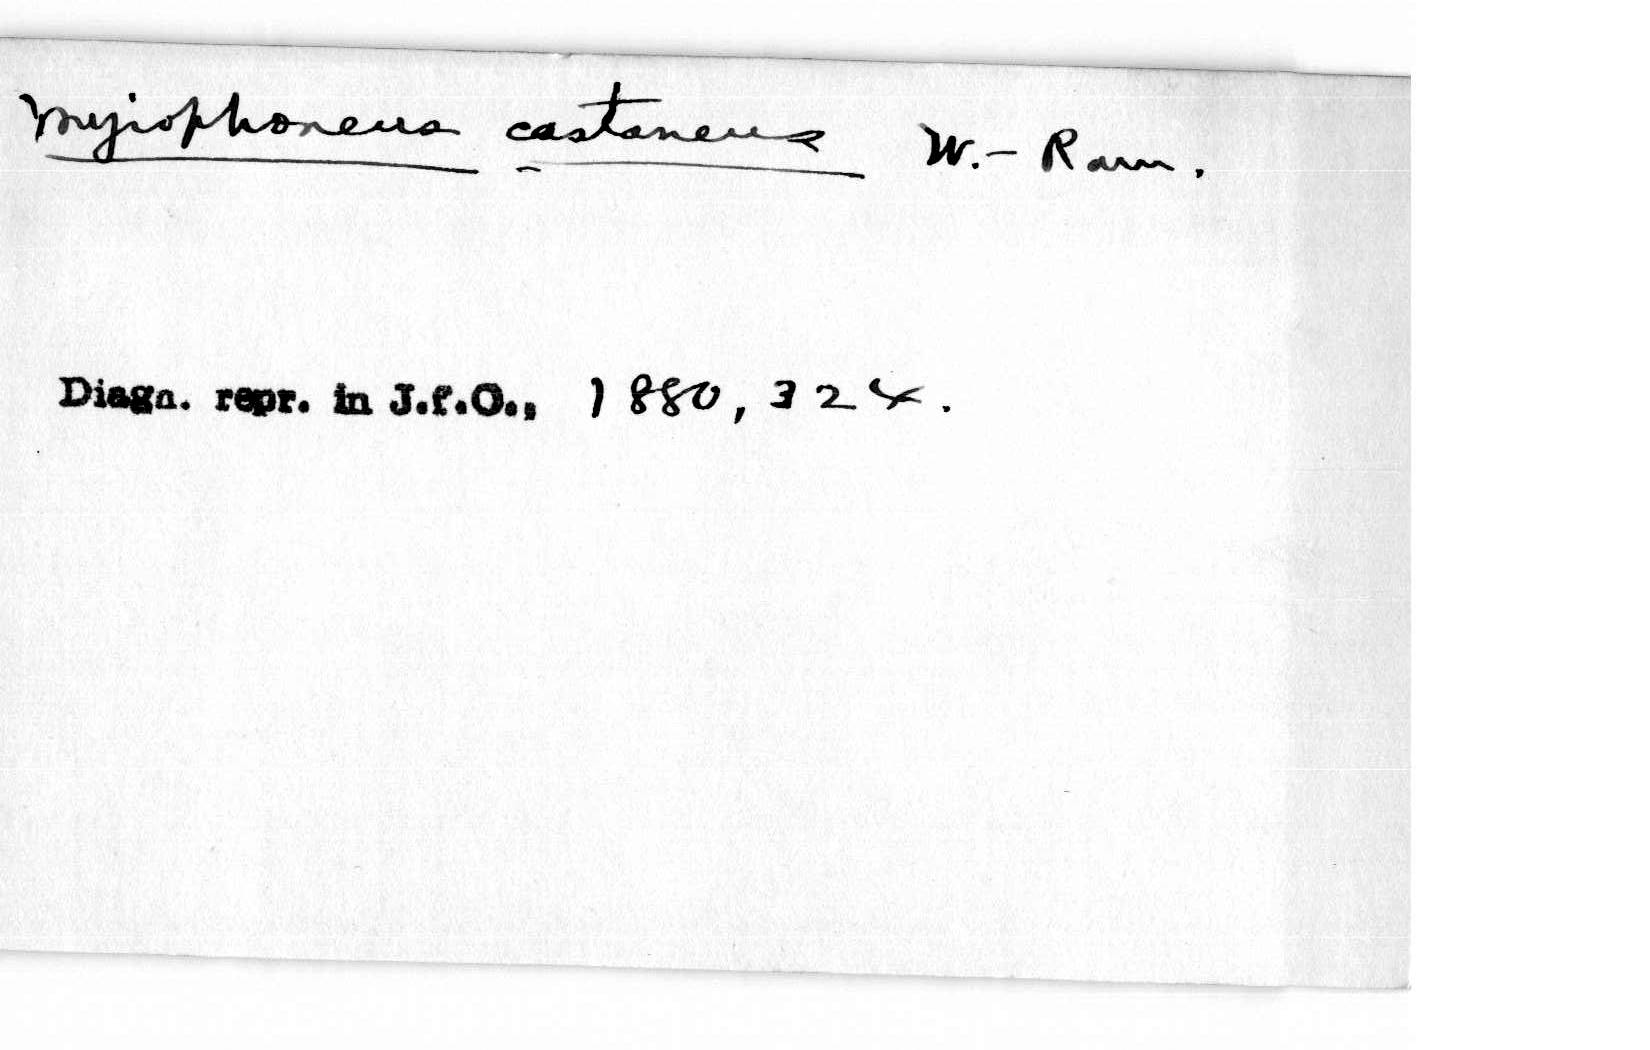 Myiophoneus castaneus W.-Ram.
Diagn. repr. in J.f.O., 1880, 324.